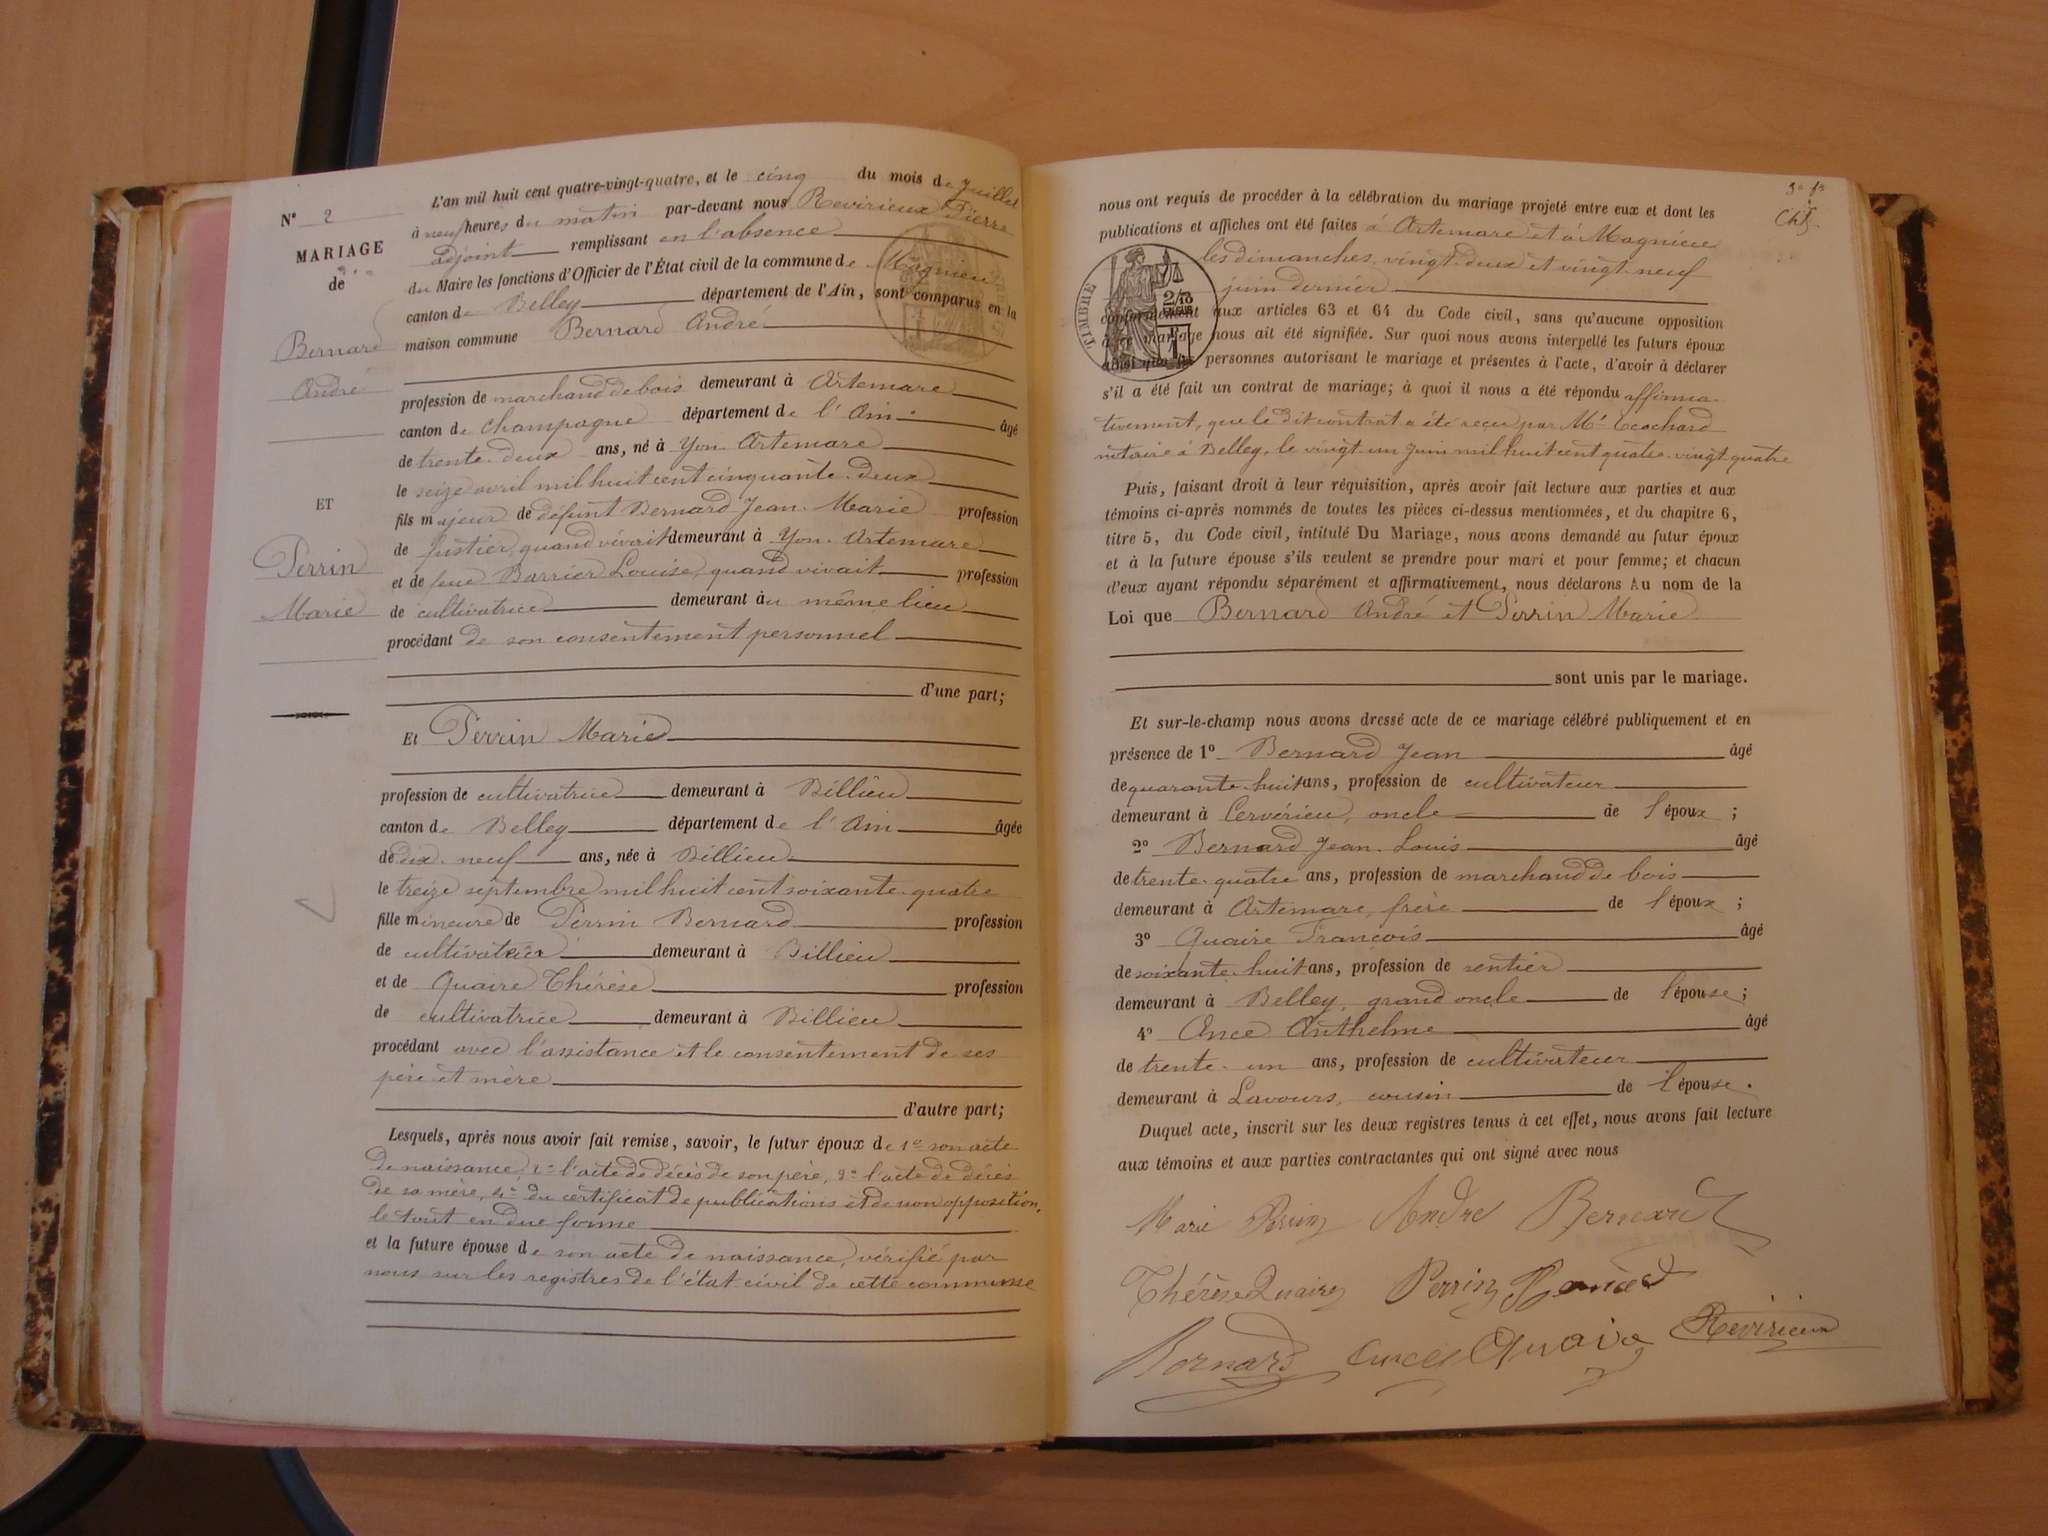 N° 2
MARIAGE
de
Bernard
André
ET
Perrin
Marie
L'an mil huit cent quatre-vingt-quatre, et le cinq du mois de Juillet
à neuf heures du matin par-devant nous Revirieux Pierre
adjoint remplissant en l'absence
du Maire les fonctions d'Officier de l'État civil de la commune de Magnieu
canton de Belley département de l'Ain, sont comparus en la
maison commune Bernard André
profession de marchand de bois demeurant à Artemare
canton de Champagne département de l'Ain âgé
de trente-deux ans, né à Yon-Artemare
le seize avril mil huit cent cinquante-deux
fils majeur de défunt Bernard Jean-Marie profession
de quand vivait demeurant à Yon-Artemare
et de feue Barrier Louise, quand vivait profession
de cultivatrice demeurant au même lieu
procédant de son consentement personnel
d'une part;
Et Perrin Marie
profession de cultivatrice demeurant à Billieu
canton de Belley département de l'Ain âgée
de dix-neuf ans, née à Billieu
le treize septembre mil huit cent soixante-quatre
fille mineure de Perrin Bernard profession
de cultivateur demeurant à Billieu
et de Quaire Thérèse profession
de cultivatrice demeurant à Billieu
procédant avec l'assistance et le consentement de ses
père et mère
d'autre part;
Lesquels, après nous avoir fait remise, savoir, le futur époux de 1° son acte
de naissance, 2° l'acte de décès de son père, 3° l'acte de décès
de sa mère, 4° du certificat de publications et de non opposition,
le tout en due forme
et la future épouse de son acte de naissance, vérifié par
nous sur les registres de l'état civil de cette commune
nous ont requis de procéder à la célébration du mariage projeté entre eux et dont les
publications et affiches ont été faites à Artemare et à Magnieu
les dimanches, vingt-deux et vingt-neuf
juin dernier
TIMBRE
conformément aux articles 63 et 64 du Code civil, sans qu'aucune opposition
à ce mariage nous ait été signifiée. Sur quoi nous avons interpellé les futurs époux
ainsi que les personnes autorisant le mariage et présentes à l'acte, d'avoir à déclarer
s'il a été fait un contrat de mariage; à quoi il nous a été répondu affirma-
tivement, que le dit contrat a été reçu par Me
notaire à Belley, le vingt-un Juin mil huit cent quatre-vingt-quatre
Puis, faisant droit à leur réquisition, après avoir fait lecture aux parties et aux
témoins ci-après nommés de toutes les pièces ci-dessus mentionnées, et du chapitre 6,
titre 5, du Code civil, intitulé Du Mariage, nous avons demandé au futur époux
et à la future épouse s'ils veulent se prendre pour mari et pour femme; et chacun
d'eux ayant répondu séparément et affirmativement, nous déclarons Au nom de la
Loi que Bernard André et Perrin Marie
sont unis par le mariage.
Et sur-le-champ nous avons dressé acte de ce mariage célébré publiquement et en
présence de 1° Bernard Jean âgé
de quarante-huit ans, profession de cultivateur
demeurant à Cervérieu, oncle de l'époux ;
2° Bernard Jean-Louis âgé
de trente-quatre ans, profession de marchand de bois
demeurant à Artemare, frère de l'époux ;
3° Quaire François âgé
de soixante-huit ans, profession de rentier
demeurant à Belley, grand oncle de l'épouse ;
4° Ance Anthelme âgé
de trente-un ans, profession de cultivateur
demeurant à Lavours, cousin de l'épouse.
Duquel acte, inscrit sur les deux registres tenus à cet effet, nous avons fait lecture
aux témoins et aux parties contractantes qui ont signé avec nous
Marie Perrin André Bernard
Thérèse Quaire Perrin Bernard
Bernard Ance Quaire Revirieux